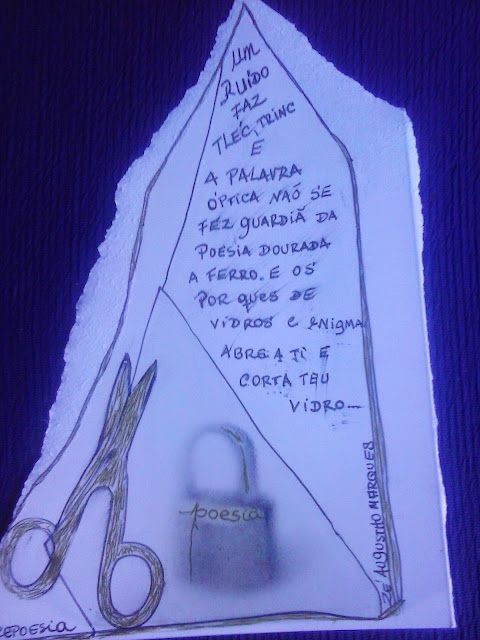 UM
RUÍDO
FAZ
TLEC, TRINC
E
A PALAVRA
ÓPTICA NAÕ SE
FEZ GUARDIÃ DA
POESIA DOURADA
A FERRO. E OS
POR QUES DE
VIDROS E ENIGMA
ABRE-A TI E
CORTA TEU
VIDRO...
poesia
ZÉ AUGUSTHO MARQUES
EPOESIA